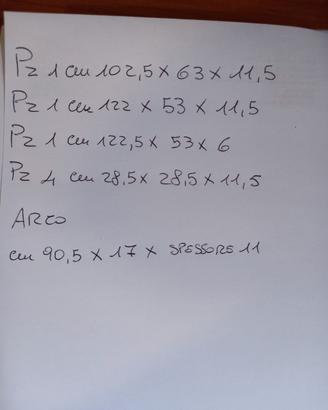 Pz 1 cm 102,5 x 63 x 11,5
Pz 1 cm 122 x 53 x 11,5
Pz 1 cm 122,5 x 53 x 6
Pz 4 cm 28,5 x 28,5 x 11,5
ARCO
cm 90,5 x 17 x SPESSORE 11